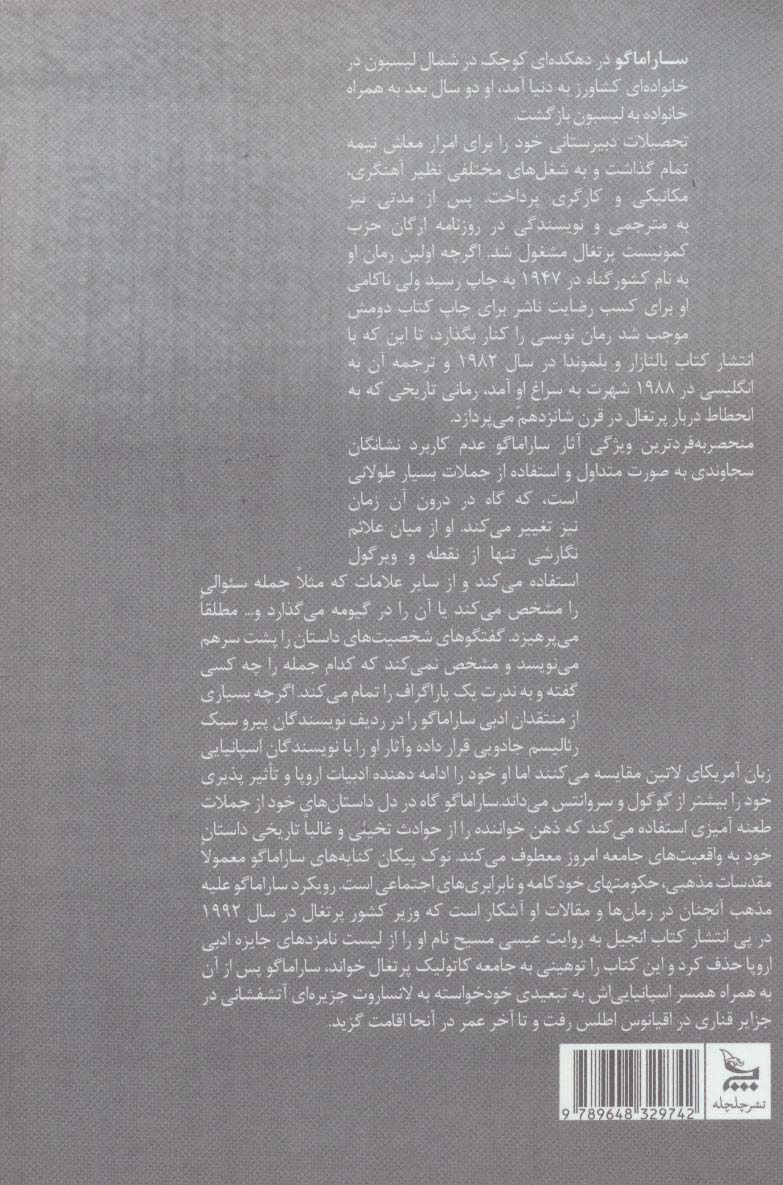 ساراماگو در دهکده‌ای کوچک در شمال لیسبون در
خانواده‌ای کشاورز به دنیا آمد، او دو سال بعد به همراه
خانواده به لیسبون بازگشت.
تحصیلات دبیرستانی خود را برای امرار معاش نیمه
تمام گذاشت و به شغل‌های مختلفی نظیر آهنگری،
مکانیکی و کارگری پرداخت. پس از مدتی نیز
به مترجمی و نویسندگی در روزنامه ارگان حزب
کمونیست پرتغال مشغول شد. اگرچه اولین رمان او
به نام کشور گناه در ۱۹۴۷ به چاپ رسید ولی ناکامی
او برای کسب رضایت ناشر برای چاپ کتاب دومش
موجب شد رمان نویسی را کنار بگذارد، تا این که با
انتشار کتاب بالتازار و بلموندا در سال ۱۹۸۲ و ترجمه آن به
انگلیسی در ۱۹۸۸ شهرت به سراغ او آمد، رمانی تاریخی که به
انحطاط دربار پرتغال در قرن شانزدهم می‌پردازد.
منحصربه‌فردترین ویژگی آثار ساراماگو عدم کاربرد نشانگان
سجاوندی به صورت متداول و استفاده از جملات بسیار طولانی
است، که گاه در درون آن زمان
نیز تغییر می‌کند. او از میان علائم
نگارشی تنها از نقطه و ویرگول
استفاده می‌کند و از سایر علامات که مثلاً جمله سئوالی
را مشخص می‌کند یا آن را در گیومه می‌گذارد و... مطلقاً
می‌پرهیزد. گفتگوهای شخصیت‌های داستان را پشت سرهم
می‌نویسد و مشخص نمی‌کند که کدام جمله را چه کسی
گفته و به ندرت یک پاراگراف را تمام می‌کند. اگرچه بسیاری
از منتقدان ادبی ساراماگو را در ردیف نویسندگان پیرو سبک
رئالیسم جادویی قرار داده وآثار او را با نویسندگان اسپانیایی
زبان آمریکای لاتین مقایسه می‌کنند اما او خود را ادامه دهنده ادبیات اروپا و تأثیر پذیری
خود را بیشتر از گوگول و سروانتس می‌داند.ساراماگو گاه در دل داستان‌های خود از جملات
طعنه آمیزی استفاده می‌کند که ذهن خواننده را از حوادث تخیلی و غالباً تاریخی داستان
خود به واقعیت‌های جامعه امروز معطوف می‌کند. نوک پیکان کنایه‌های ساراماگو معمولاً
مقدسات مذهبی، حکومتهای خودکامه و نابرابری‌های اجتماعی است. رویکرد ساراماگو علیه
مذهب آنچنان در رمان‌ها و مقالات او آشکار است که وزیر کشور پرتغال در سال ۱۹۹۲
در پی انتشار کتاب انجیل به روایت عیسی مسیح نام او را از لیست نامزدهای جایزه ادبی
اروپا حذف کرد و این کتاب را توهینی به جامعه کاتولیک پرتغال خواند، ساراماگو پس از آن
به همراه همسر اسپانیایی‌اش به تبعیدی خودخواسته به لانساروت جزیره‌ای آتشفشانی در
جزایر قناری در اقیانوس اطلس رفت و تا آخر عمر در آنجا اقامت گزید.
نشر چلچله
9 789648 329742